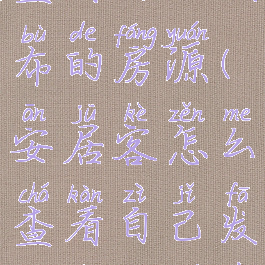 bù de fáng yuán
布的房源(
ān jū kè zěn me
安居客怎么
chá kàn zì jǐ fā
查看自己发